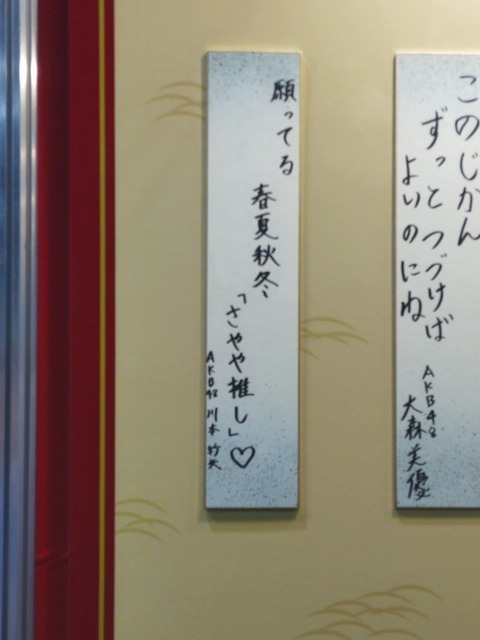 このじかん
ずっとつづけば
よいのにね
AKB48 大森美優
願ってる
春夏秋冬
「さやや推し」♡
AKB48 川本 紗矢